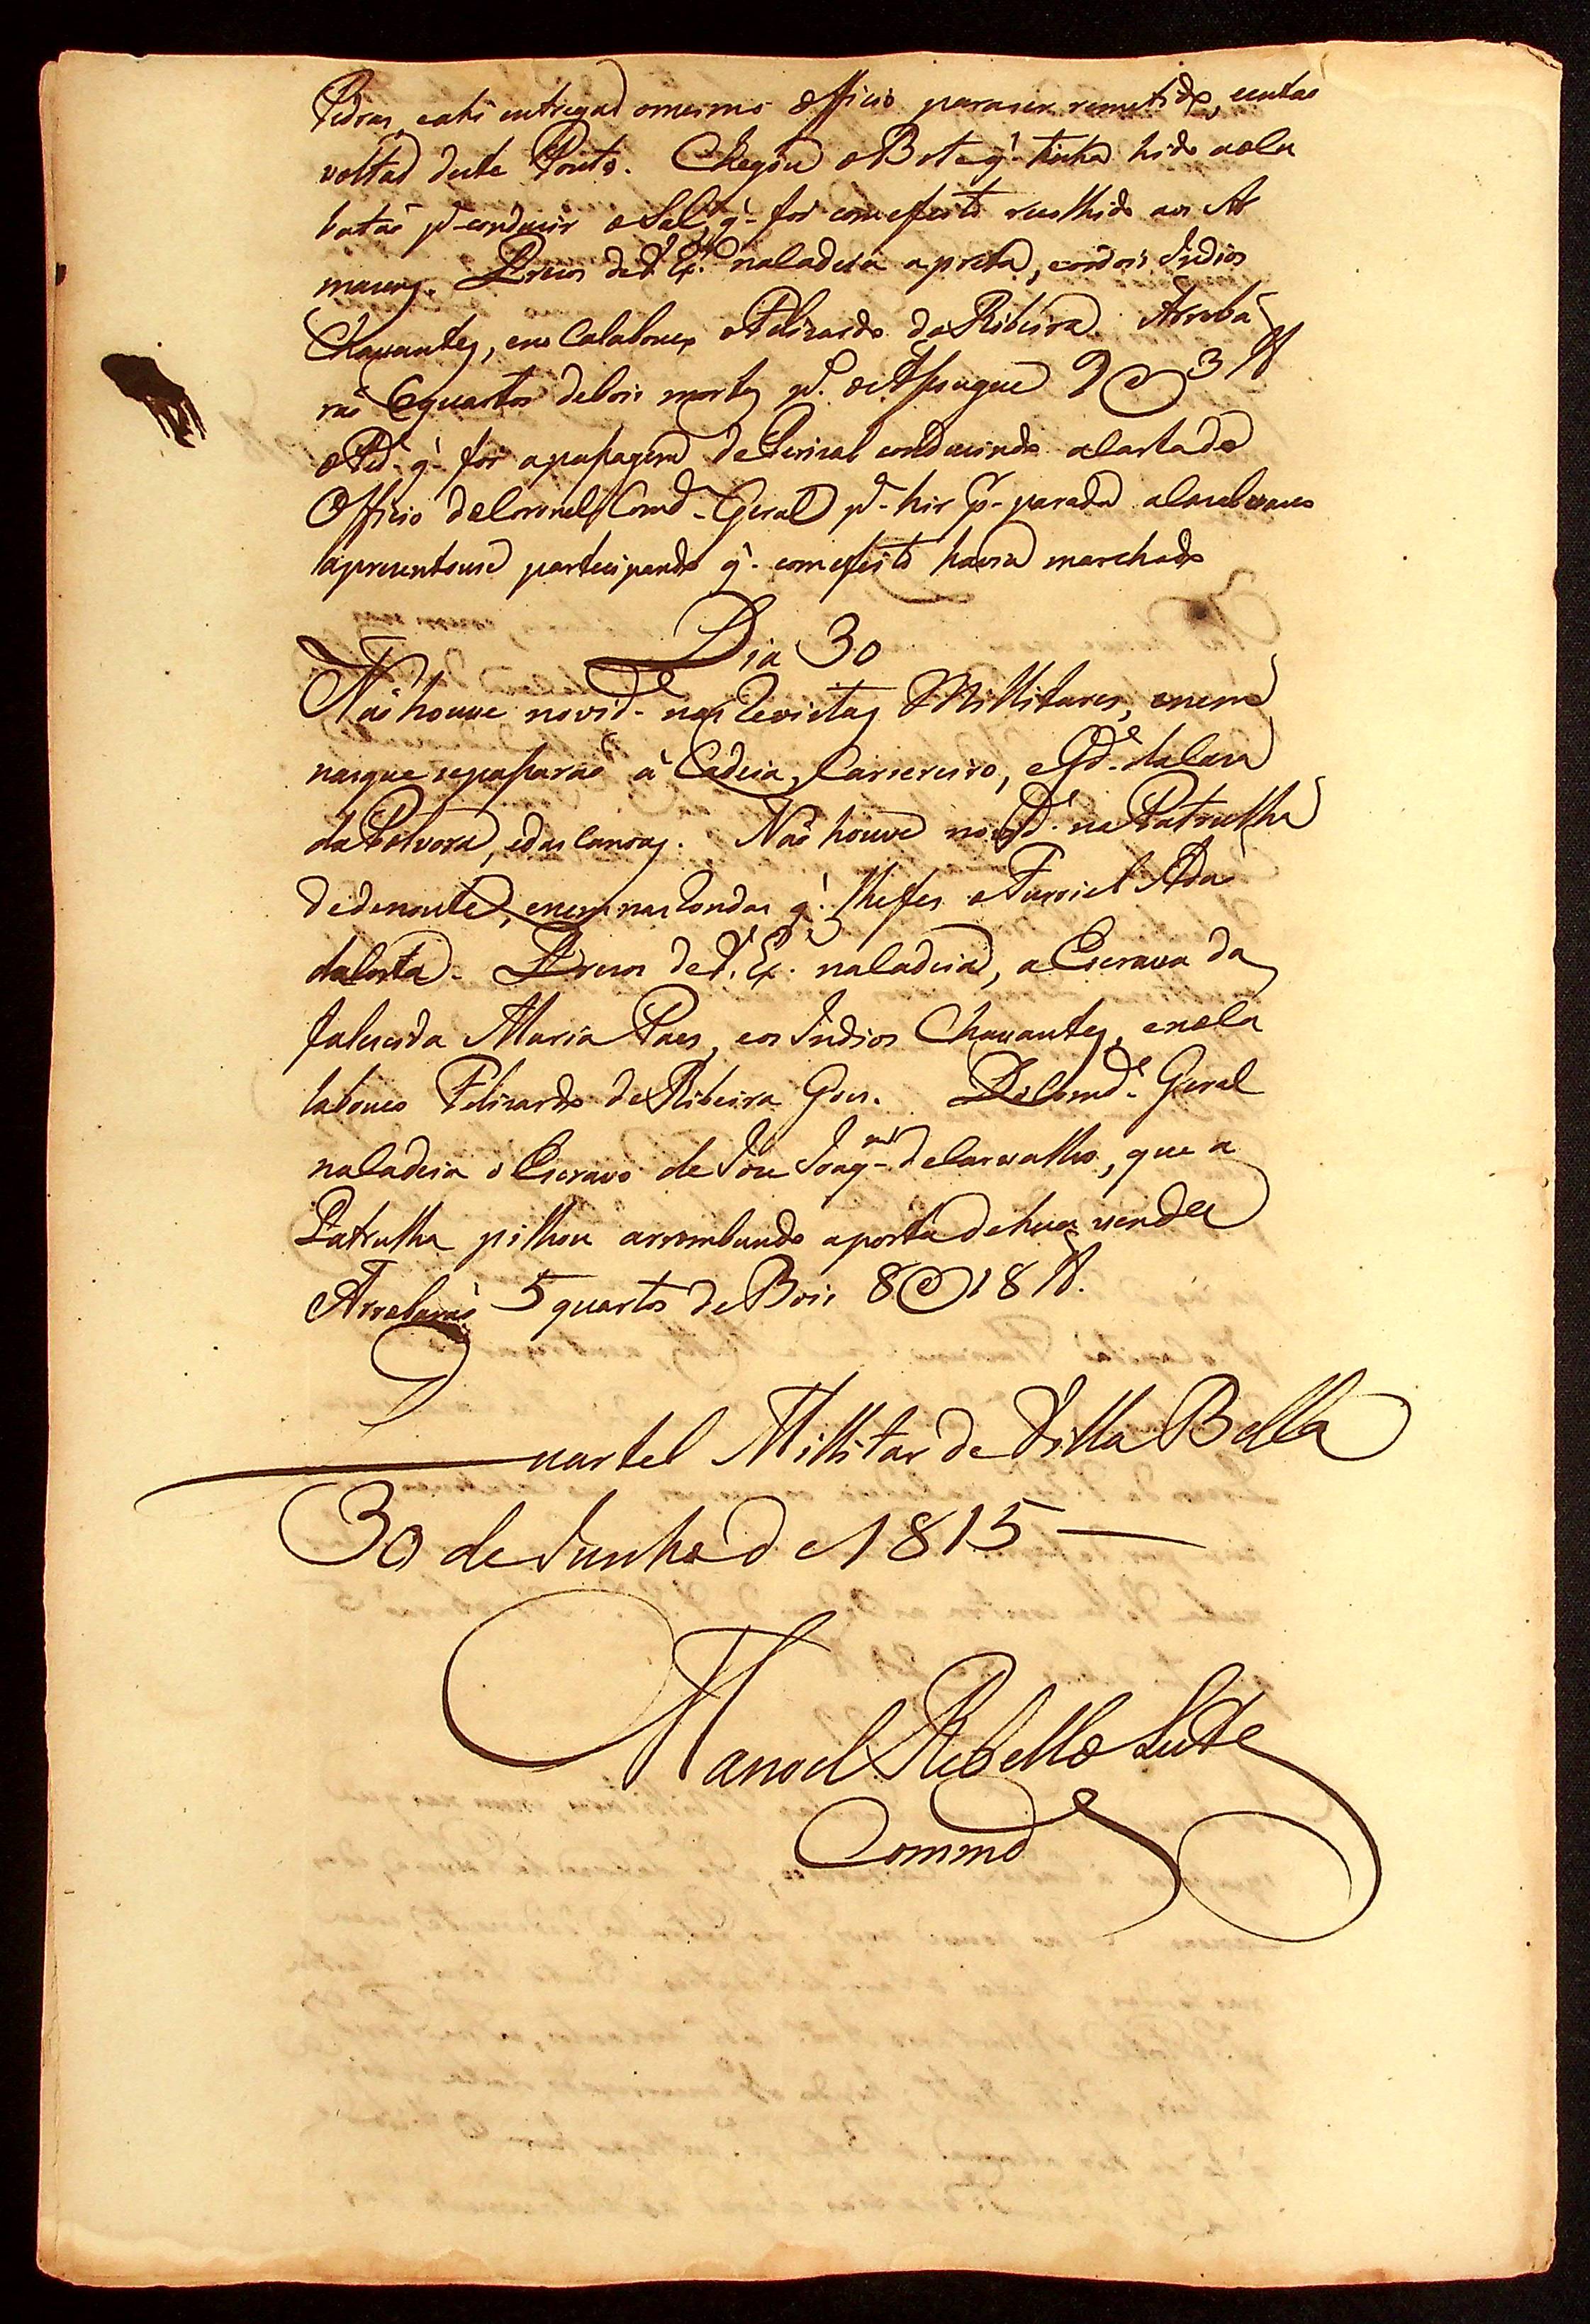 Pedras, eahi entregad omesmo Officio paraser remetido, eentaõ
voltad deste Ponto. Chegou o Bote q̃- tinha hido aola
lataõ pᵃ- conduzir o Sal, q̃- foi comeffeito recolhido aos Ar
mazeⁿs. Prezos de V. Exᵃ. naCadeia apreta, eosdois Indios
Chavantes, eno Calabouço o Felizardo daRibeira. Arrobá
raõ 6 quartos debois mortos pᵃ. o Assougue 9 @ 3 ℔
o Pedᵉ. q̃- foi apassagem do Perizal conduzindo aCartado
Officio doCoronel Comdᵉ- Geral pᵃ- hir pʳ- parada
apresentouse participando q̃- comeffeito havia marchado
Dia 30
Naõ houve novidᵉ- nas Revistas Millitares, enem
nasque sepassaraõ á Cadeia, Carsereiro, eGdᵃ. daCasa
da Polvora, edas Canoas. Naõ houve novidᵉ. na Patrulha
dedenoute, enem nas Rondas q̃. lhefes o Furriel Adaõ
daCosta. Prezos de V. Exᵃ. naCadeia, a Escrava da
falescida Maria Paes, eos Indios Chavantes, enoCa
labouço Felizardo da Ribeira Goes. Do Comdᵉ. Geral
naCadeia o Escravo de Joze Joaqᵐ- deCarvalho, que a
Patrulha pilhou arrombando aporta dehua venda
Arrobaraõ 5 quartos de Bois 8 @ 18 ℔.
Quartel Millitar de Villa Bella
30 de Junho de 1815 —
Manoel Rebello Leite
Commdᵉ